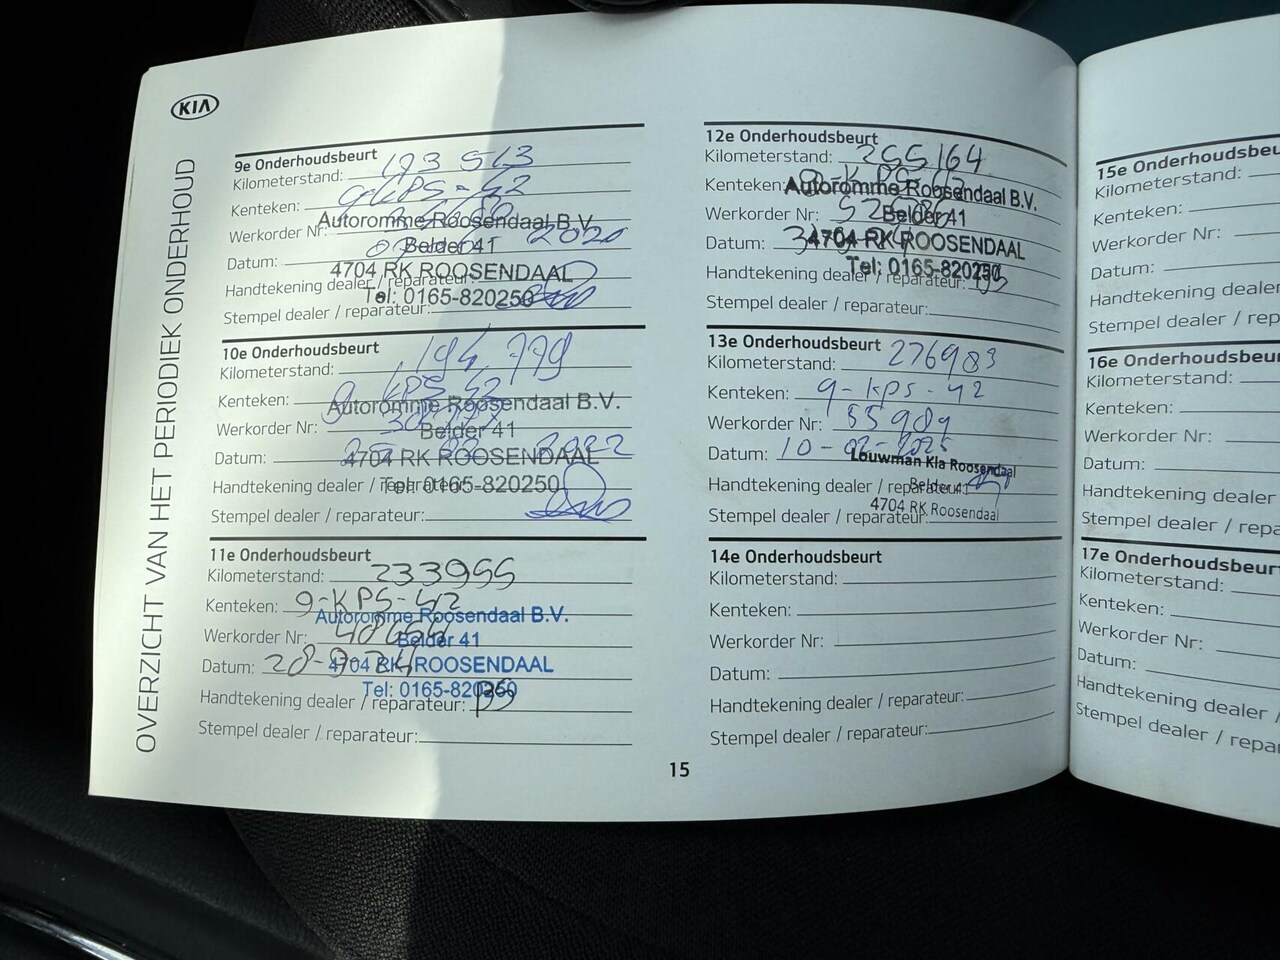 KIA
OVERZICHT VAN HET PERIODIEK ONDERHOUD
9e Onderhoudsbeurt
Kilometerstand: 173 513
Kenteken: 9-KPS-42
Werkorder Nr:
Autoromme Roosendaal B.V.
Datum: 2020
Belder 41
4704 RK ROOSENDAAL
Handtekening dealer / reparateur:
Tel: 0165-820250
Stempel dealer / reparateur:
10e Onderhoudsbeurt
Kilometerstand: 194 779
Kenteken: 9-KPS-42
Autoromme Roosendaal B.V.
Werkorder Nr:
Belder 41
Datum: 2022
4704 RK ROOSENDAAL
Handtekening dealer / reparateur:
Tel: 0165-820250
Stempel dealer / reparateur:
11e Onderhoudsbeurt
Kilometerstand: 233955
Kenteken: 9-KPS-42
Autoromme Roosendaal B.V.
Werkorder Nr:
Belder 41
Datum:
4704 RK ROOSENDAAL
Tel: 0165-820250
Handtekening dealer / reparateur:
Stempel dealer / reparateur:
12e Onderhoudsbeurt
Kilometerstand: 255164
Kenteken: 9-KPS-42
Autoromme Roosendaal B.V.
Werkorder Nr:
Belder 41
Datum:
4704 RK ROOSENDAAL
Handtekening dealer / reparateur:
Tel: 0165-820250
Stempel dealer / reparateur:
13e Onderhoudsbeurt
Kilometerstand: 276983
Kenteken: 9-KPS-42
Werkorder Nr: 55989
Datum: 10-02-2025
Louwman Kia Roosendaal
Handtekening dealer / reparateur:
Belder 41
4704 RK Roosendaal
Stempel dealer / reparateur:
14e Onderhoudsbeurt
Kilometerstand:
Kenteken:
Werkorder Nr:
Datum:
Handtekening dealer / reparateur:
Stempel dealer / reparateur:
15
15e Onderhoudsbeu
Kilometerstand:
Kenteken:
Werkorder Nr:
Datum:
Handtekening dealer
Stempel dealer / rep
16e Onderhoudsbeu
Kilometerstand:
Kenteken:
Werkorder Nr:
Datum:
Handtekening dealer
Stempel dealer / repa
17e Onderhoudsbeur
Kilometerstand:
Kenteken:
Werkorder Nr:
Datum:
Handtekening dealer /
Stempel dealer / repa